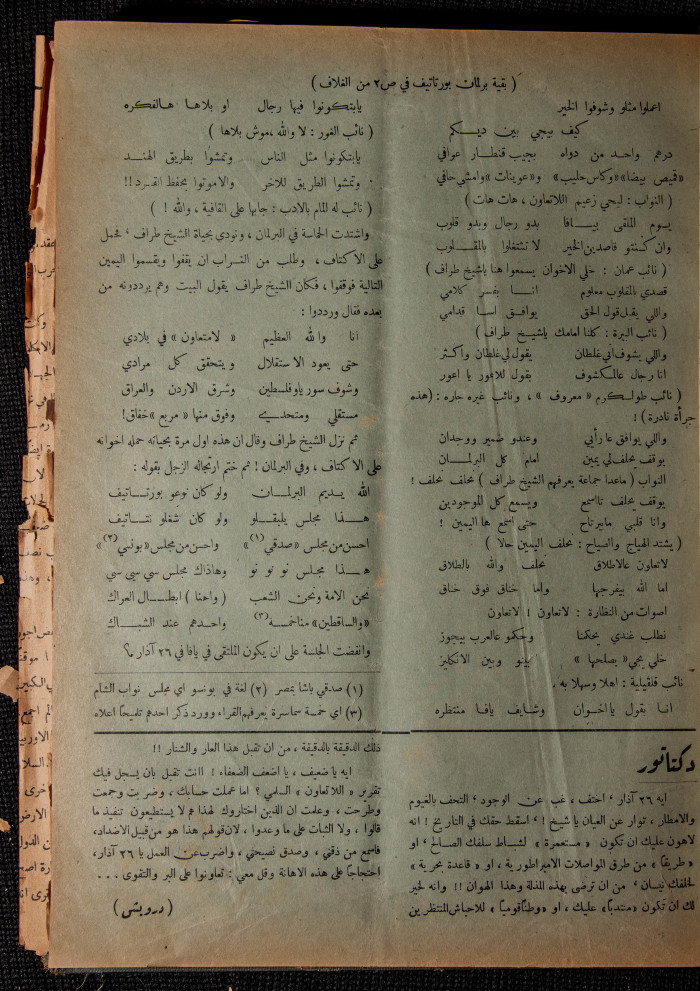 ( بقية برلمان بورتاتيف في ص٢ من الغلاف )
اعملوا مثلو وشوفوا الخير
كيف بيجي بين ديكم
درهم واحد من دواه بجيب قنطار عوافي
«قميص بيضا» «وكاس حليب» و«عوينات» وامشي حافي
( النواب : ليحي زعيم اللاتعاون ، هات هات )
يسوم الملقى بيافا بدو رجال وبدو قلوب
وان كنتو قاصدين الخير لا تشتغلوا بالمقلوب
( نائب عمان : خلي الاخوان يسمعوا هنا ياشيخ طراف )
قصدي بالمقلوب معلوم انا بفسر كلامي
واللي يقبل قول الحق يوافق اسا قدامي
( نائب البيرة : كلنا امامك ياشيخ طراف )
واللي يشوف أني غلطان يقول لي غلطان واكثر
انا رجال عالمكشوف بقول للاعور يا اعور
( نائب طولكرم « معروف » ، ونائب غيره حاره : (هذه
جرأة نادرة ) !
واللي يوافق عا رأيي وعندو ضمير ووجدان
يوقف يحلف لي يمين امام كل البرلمان
النواب ( ماعدا جماعة يعرفهم الشيخ طراف ) نحلف نحلف !
يوقف يحلف تااسمع ويسمع كل الموجودين
وانا قلبي مابيرتاح حتى اسمع هااليمين !
( يشتد الهياج والصياح : نحلف اليمين حالا )
لاتعاون عالاطلاق نحلف والله بالطلاق
اما الله بيفرجها واما خناق فوق خناق
اصوات من النظارة : لاتعاون ! لاتعاون
نطلب غندي يحكمنا وحكمو عالعرب بيجوز
خلي يجي «يصلحها » بينو وبين الانكليز
نائب قلقيلية : اهلا وسهلا به .
انا بقول يااخوان وشايف يافا منتظره
يابتكونوا فيها رجال او بلاها هالفكره
( نائب الغور : لا والله ، موش بلاها )
يابتكونوا مثل الناس وتمشوا بطريق الهند
وتمشوا الطريق للآخر والاموتوا بمحفظ القرد !!
( نائب له المام بالادب : جابها على القافية ، والله ! )
واشتدت الحماسة في البرلمان ، ونودي بحياة الشيخ طراف ، فحمل
على الاكتاف ، وطلب من النواب ان يقفوا ويقسموا اليمين
التالية فوقفوا ، فكان الشيخ طراف يقول البيت وهم يرددونه من
بعده فقال ورددوا :
انا والله العظيم « لامتعاون » في بلادي
حتى يعود الاستقلال ويتحقق كل مرادي
وشوف سوريا وفلسطين وشرق الاردن والعراق
مستقلي ومتحديه وفوق منها « مربع » خفاق !
ثم نزل الشيخ طراف وقال ان هذه اول مرة بحياته حمله اخوانه
على الاكتاف ، وفي البرلمان ! ثم ختم ارتجاله الزجل بقوله :
الله يديم البرلمان ولو كان نوعو بورتاتيف
هذا مجلس يلبقلو ولو كان شغلو نتاتيف
احسن من مجلس « صدقي (١) » واحسن من مجلس « بونسي (٢) »
هذا مجلس نو نو نو وهاذاك مجلس سي سي سي
نحن الامة ونحن الشعب ( واحنا ) ابطال العراك
«والساقطين» مناخمسة (٣) واحدهم عند الشباك
وانفضت الجلسة على ان يكون الملتقى في يافا في ٢٦ آذار ؟
(١) صدقي باشا بمصر (٢) لغة في بونسو اي مجلس نواب الشام
(٣) اي خمسة سماسرة يعرفهم القراء وورد ذكر احدهم تلميحاً اعلاه
دكتاتور
ايه ٢٦ آذار ، اختف ، غب عن الوجود ، التحف بالغيوم
والامطار ، توار عن العيان يا شيخ ! ، اسقط حقك في التاريخ ! انه
لاهون عليك ان تكون « مستعمرة » لشباط سلفك الصالح ، او
« طريقاً » من طرق المواصلات الامبراطورية ، او « قاعدة بحرية »
لخلفك نيسان ، من ان ترضى بهذه المذلة وهذا الهوان !! وانه لخير
لك ان تكون «منتدباً» عليك ، او «وطناً قومياً » للاحباش المنتظرين
ذلك الدقيقة بالدقيقة ، من ان تقبل هذا العار والشنار !!
ايه يا ضعيف ، يا اضعف الضعفاء ! اانت تقبل بان يسجل فيك
تقرير « اللاتعاون » السلمي ؟ اما عملت حسابك ، وضربت وجمعت
وطرحت ، وعلمت ان الذين اختاروك لهذا هم لا يستطيعون تنفيذ ما
قالوا ، ولا الثبات على ما وعدوا ، لان قولهم هذا هو من قبيل الاضداد ،
فاسمع من ذقني ، وصدق نصيحتي ، واضرب عن العمل يا ٢٦ آذار ،
احتجاجاً على هذه الاهانة وقل معي : تعاونوا على البر والتقوى . . .
( درويش )